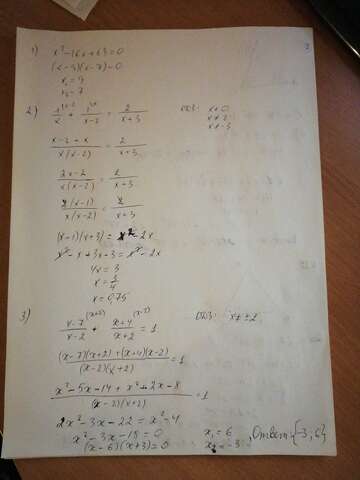 1) x² - 16x + 63 = 0
(x-9)(x-7) = 0
x₁ = 9
x₂ = 7
2) 1^(x-2)/x + 1^(x)/(x-2) = 2/(x+3) ОДЗ: x≠0
x≠2
x≠-3
(x-2+x)/(x(x-2)) = 2/(x+3)
(2x-2)/(x(x-2)) = 2/(x+3)
2(x-1)/(x(x-2)) = 2/(x+3)
(x-1)(x+3) = x² - 2x
x² - x + 3x - 3 = x² - 2x
4x = 3
x = 3/4
x = 0,75
3) (x-7)/(x-2)^(x+2) + (x+4)/(x+2)^(x-2) = 1 ОДЗ: x≠±2
((x-7)(x+2)+(x+4)(x-2))/((x-2)(x+2)) = 1
(x²-5x-14+x²+2x-8)/((x-2)(x+2)) = 1
2x² - 3x - 22 = x² - 4
x² - 3x - 18 = 0 x₁ = 6
(x-6)(x+3) = 0 x₂ = -3 , Ответ {-3, 6}